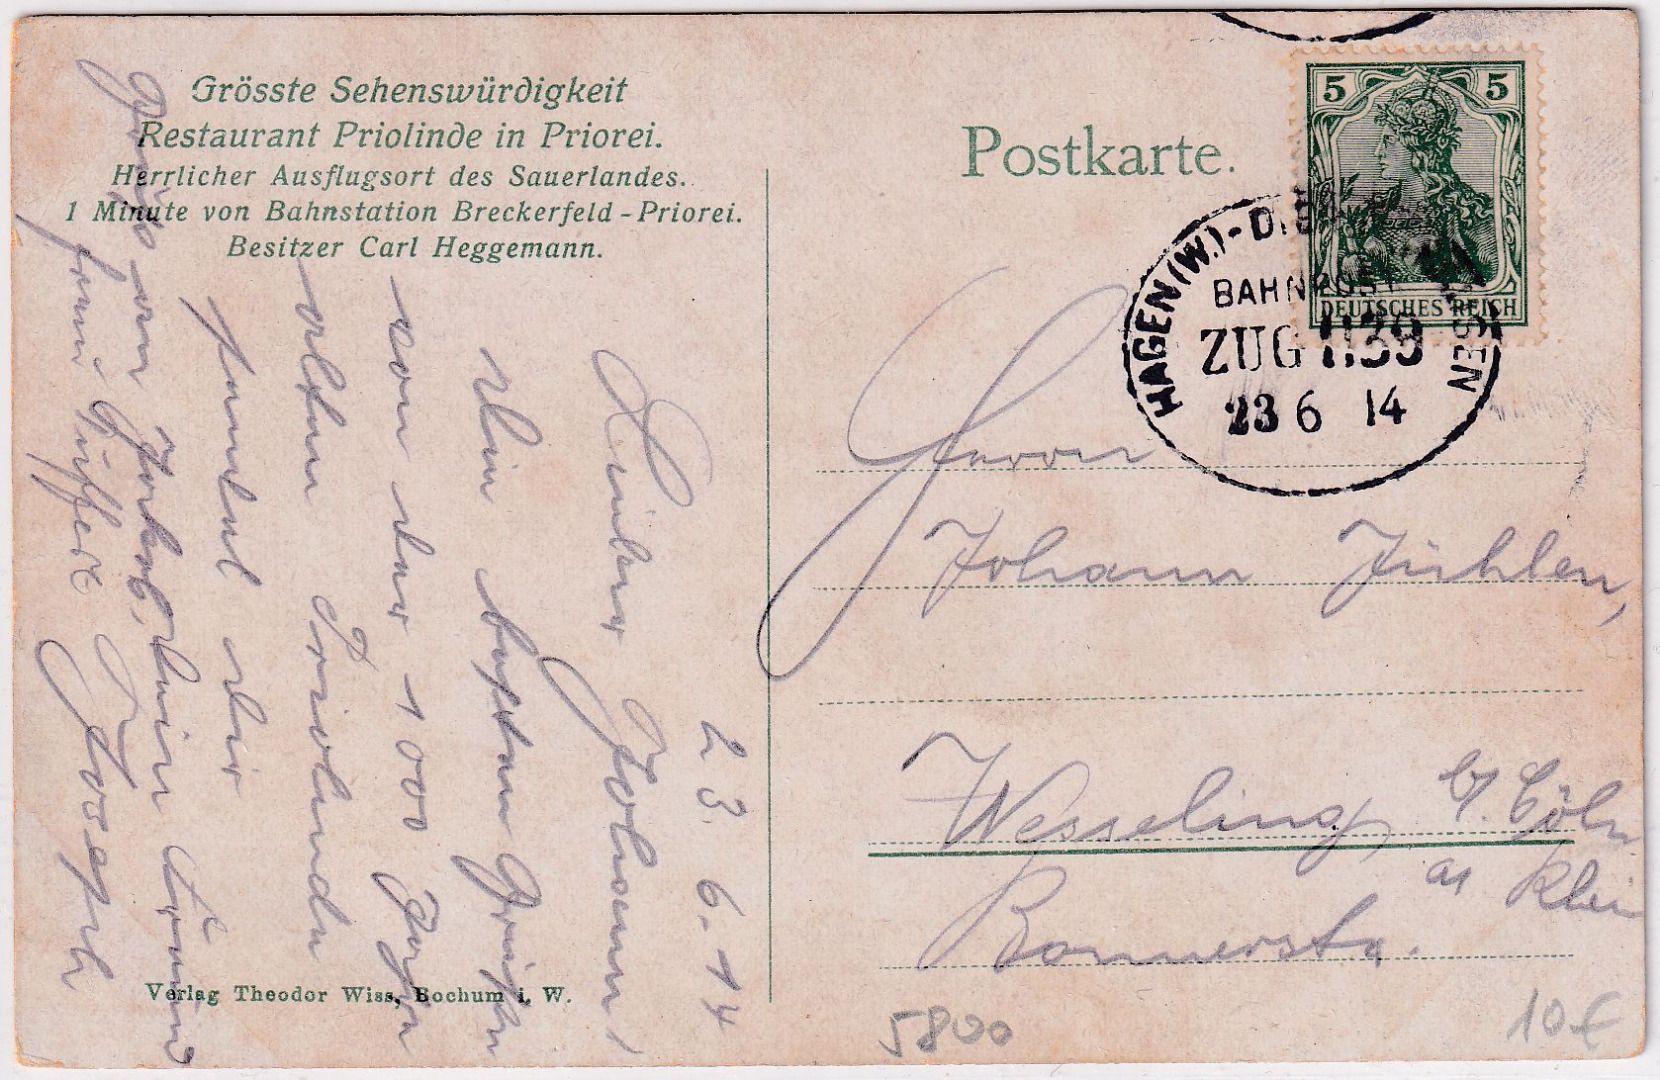 Grösste Sehenswürdigkeit
Restaurant Priolinde in Priorei.
Herrlicher Ausflugsort des Sauerlandes.
1 Minute von Bahnstation Breckerfeld-Priorei.
Besitzer Carl Heggemann.
23. 6. 14
Lieber Johann!
Die besten Grüße
von der 1000 Jahre
alten Priolinde
sendet dir
dein Freund
Joseph
Gruß von
Verlag Theodor Wiss, Bochum i. W.
Postkarte.
5 5
DEUTSCHES REICH
HAGEN (W.)-DIE
BAHNPOST
ZUG 1139
23 6 14
Herrn
Johann Jühlen,
Wesseling, b/ Cöln
a/ Rhein
Bonnerstr.
5800
10 €